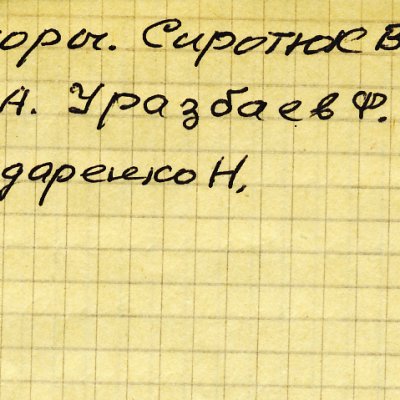 оры. Сиротюк В
А. Уразбаев Ф.
даренко Н,